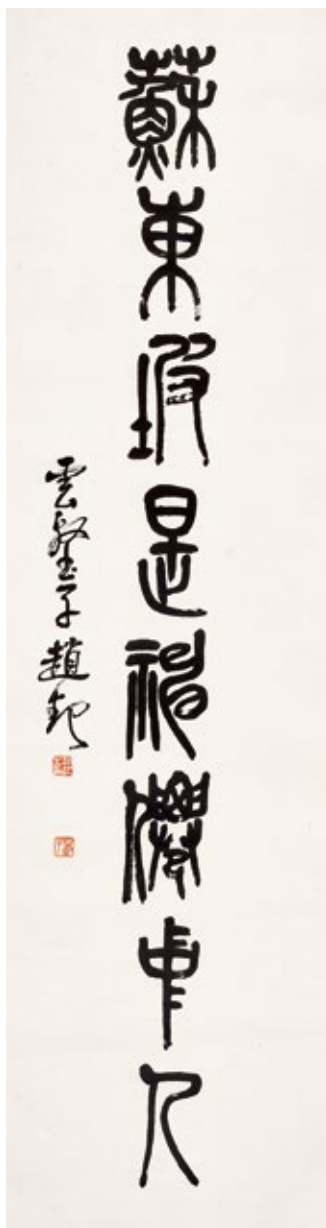 蘇東坡是神僊中人
雲壑子趙起